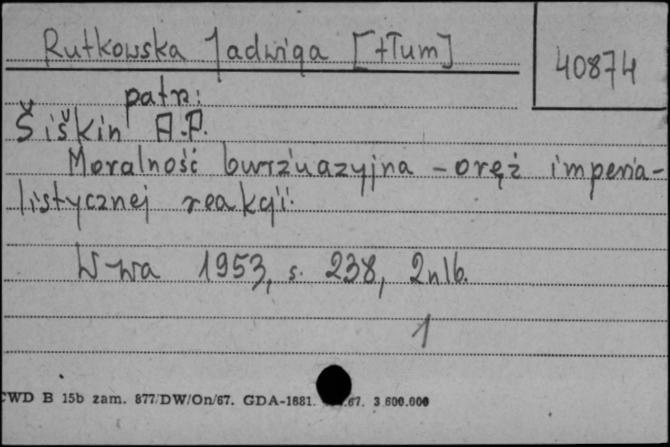 Rutkowska Jadwiga [tłum]
40874
patrz:
Šiškin A.F.
Moralność burżuazyjna - oręż imperia-
listycznej reakcji.
W-wa 1953, s. 238, 2nlb.
1
CWD B 15b zam. 877/DW/On/67. GDA-1681. .67. 3.600.000